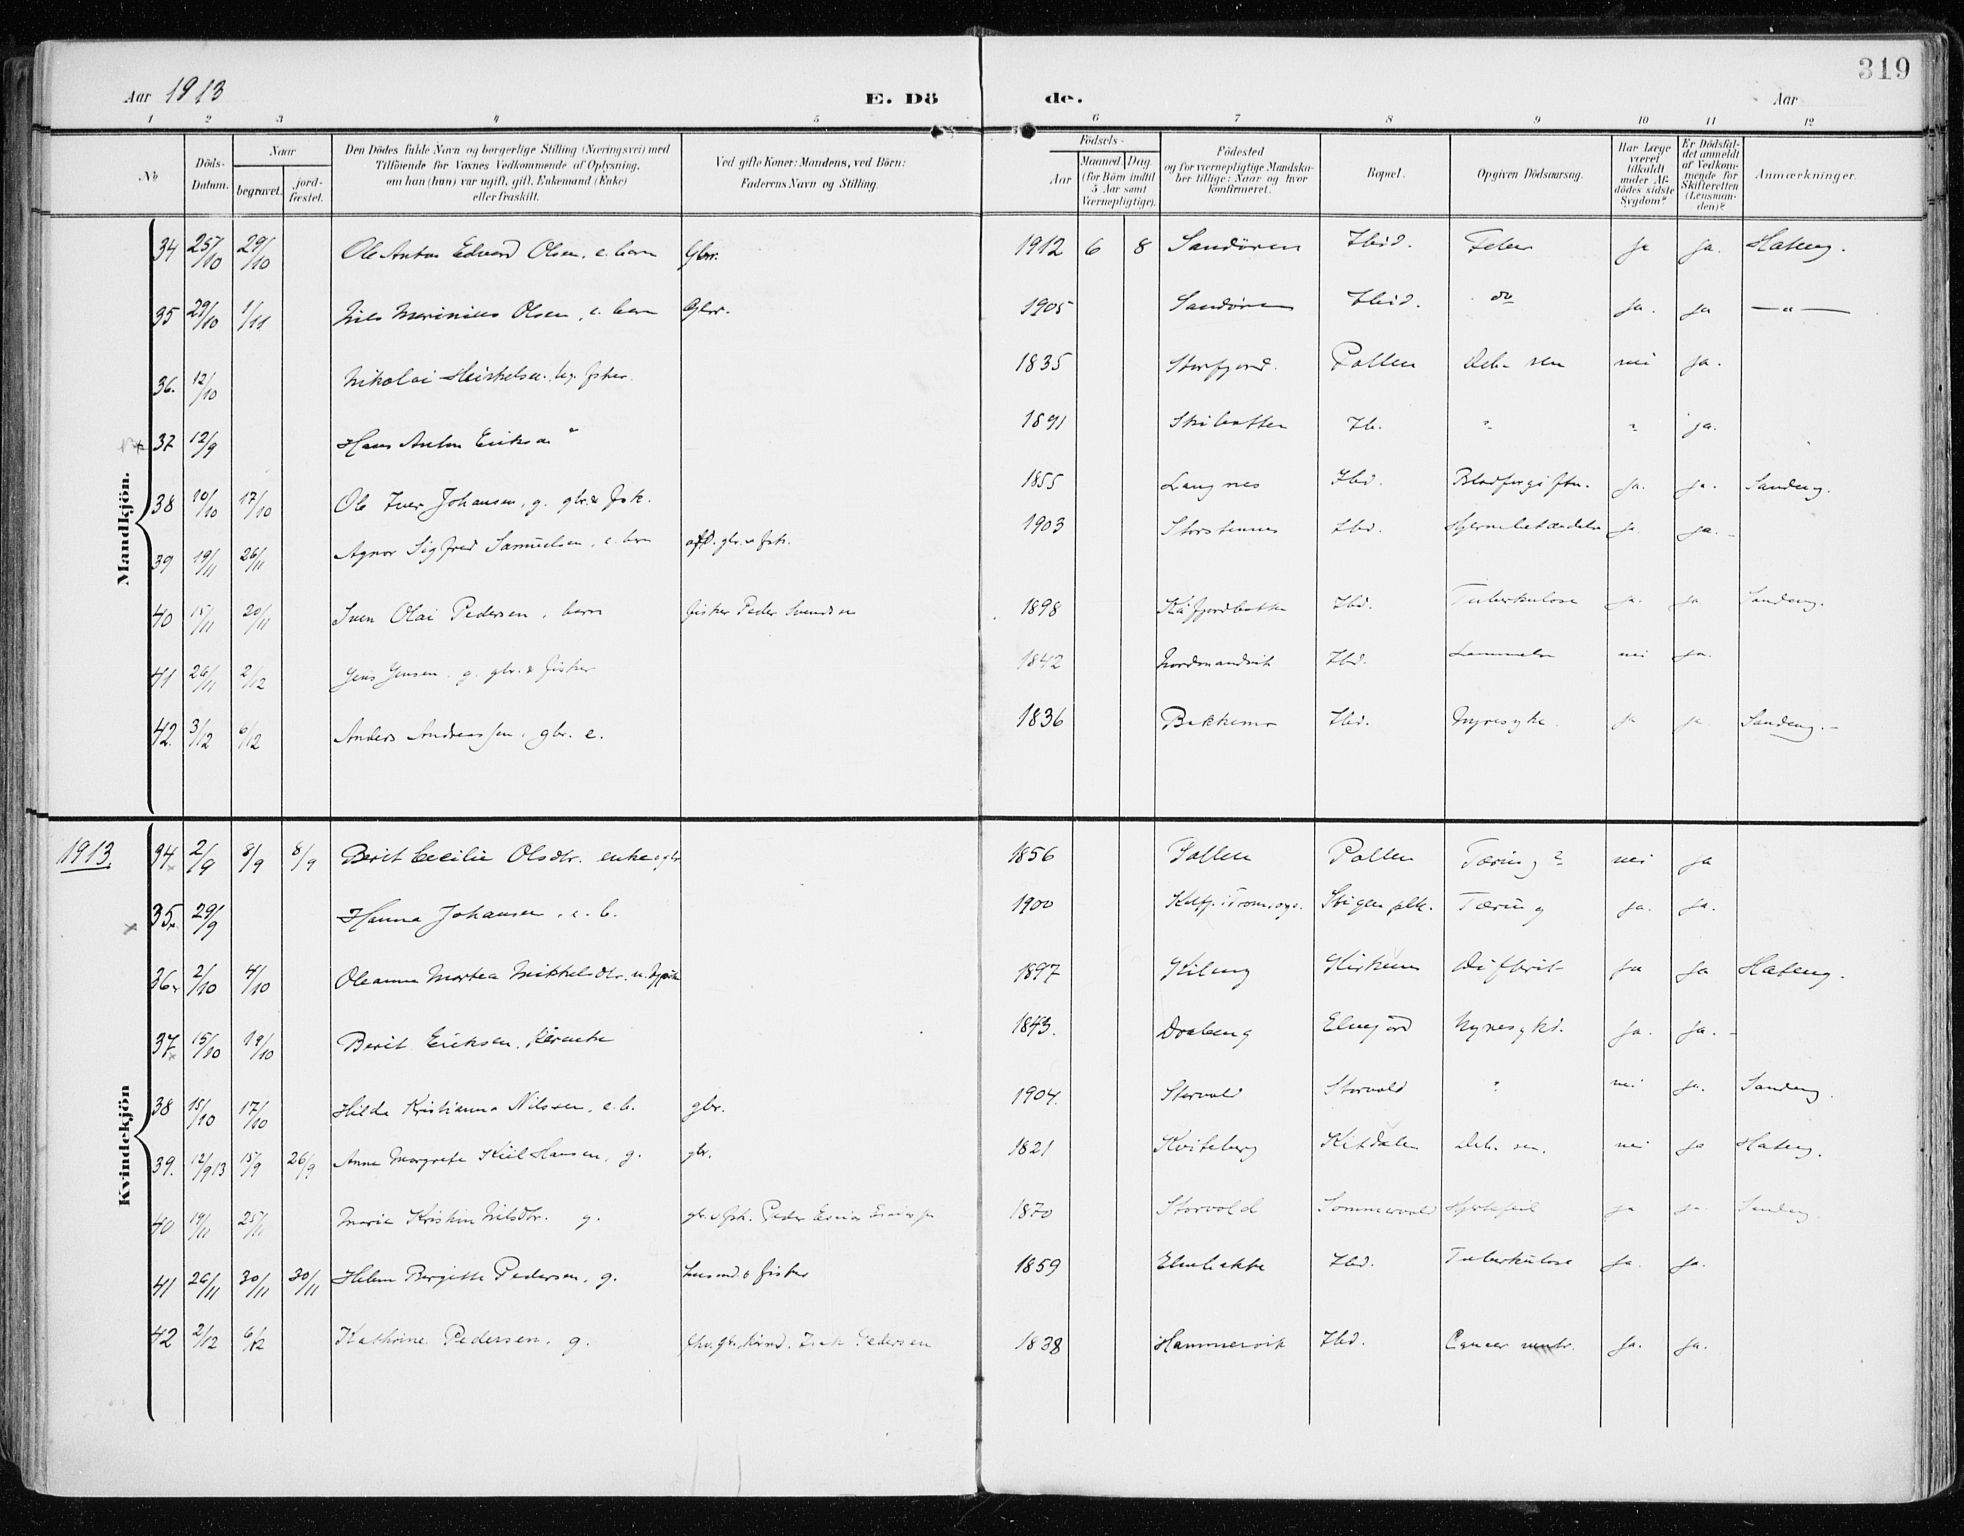 319
Aar 1913 E. Dö de. Aar
1 2 3 4 5 6 7 8 9 10 11 12
No
Döds-Datum.
Naar
begravet.
jord-fæstet.
Den Dödes fulde Navn og borgerlige Stilling (Næringsvei) med
Tilföiende for Voxnes Vedkommende af Oplysning,
om han (hun) var ugift, gift, Enkemand (Enke)
eller fraskilt.
Ved gifte Koner: Mandens, ved Börn:
Faderens Navn og Stilling.
Födsels-
Aar
Maaned. Dag.
(for Börn indtil
5 Aar samt
Værnepligtige).
Födested
og for værnepligtige Mandska-
ber tillige: Naar og hvor
konfirmeret.
Bopæl.
Opgiven Dödsaarsag.
Har Læge
været
tilkaldt
under Af-
dödes sidste
Sygdom?
Er Dödsfal-
det anmeldt
af Vedkom-
mende for
Skifteretten
(Lensman-
den)?
Anmærkninger.
Mandkjön.
34 25/10 29/10 Ole Anton Edvard Olsen, e. barn Gbr. 1912 6 8 Sandören Ibid. Feber ja ja. Hateng.
35 29/10 1/11 Nils Marinius Olsen, e. barn Gbr. 1905 Sandören Ibid. do ja. ja — " —
36. 12/10 Nikolai Heiskelsen 1835 Storfjord. Pollen Deb. sen nei ja.
37 12/9 Hans Anton Eriksen " 1891 Skibotten Ib. " " ja.
38 10/10 17/10 Ole Iver Johansen, g. gbr. & fisk. 1855 Langnes Ibid. Blodforgiftn. ja. ja. Sandeng.
39 19/11 26/11 Agnor Sigfred Samuelsen, e. barn gbr. & fisk. 1903 Storstennes Ibid. Hjernebetændelse ja. ja.
40 15/11 20/11 Sven Olai Pedersen, barn fisker Peder Svendsen 1898 Kåfjordbotten Ibid. Tuberkulose ja. ja. Sandeng.
41 26/11 2/12 Jens Jensen, g. gbr. & fisker 1842 Nordmandvik Ibid. Lammelse nei ja.
42. 3/12 6/12 Anders Andreassen, gbr. e. 1836 Ibid. Nyresyke. ja ja. Sandeng.
1913.
Kvindekjön
34 2/9 8/9 8/9 Berit Cecilie Olsdtr. enke 1856 Pollen Pollen Tæring? nei ja
35 29/9 Hanna Johansen, e. b. 1900 Tæring ja. ja.
36 2/10 4/10 Oleanna Martea Mikkelsdtr. u. 1897 Kileng Difterit ja ja Hateng.
37 15/10 19/10 Berit Eriksen, 1843. Elvejord Nyresykd. ja. ja.
38 15/10 17/10 Hilda Kristianna Nilsen, e. b. gbr. 1904. Storvold Storvold " nei ja. Sandeng.
39. 12/9 13 15/9 26/9 Anne Margrete Kiil Hansen, g. gbr. 1821 Kviteberg Kitdalen Deb. sen. nei ja Hateng.
40 19/11 25/11 Marie Kristin Nilsdtr. g. gbr. & fisk. Peder 1870 Storvold Sommervold Hjertefeil ja ja. Sandeng.
41 26/11 30/11 30/11 Helene Bergitte Pedersen, g. Husmd. & fisker 1859 Elvebakke Ibid. Tuberkulose ja. ja.
42 2/12 6/12 Kathrine Pedersen, g. Isak Pedersen 1838 Hammervik Ibid. Cancer ventr. ja. ja.